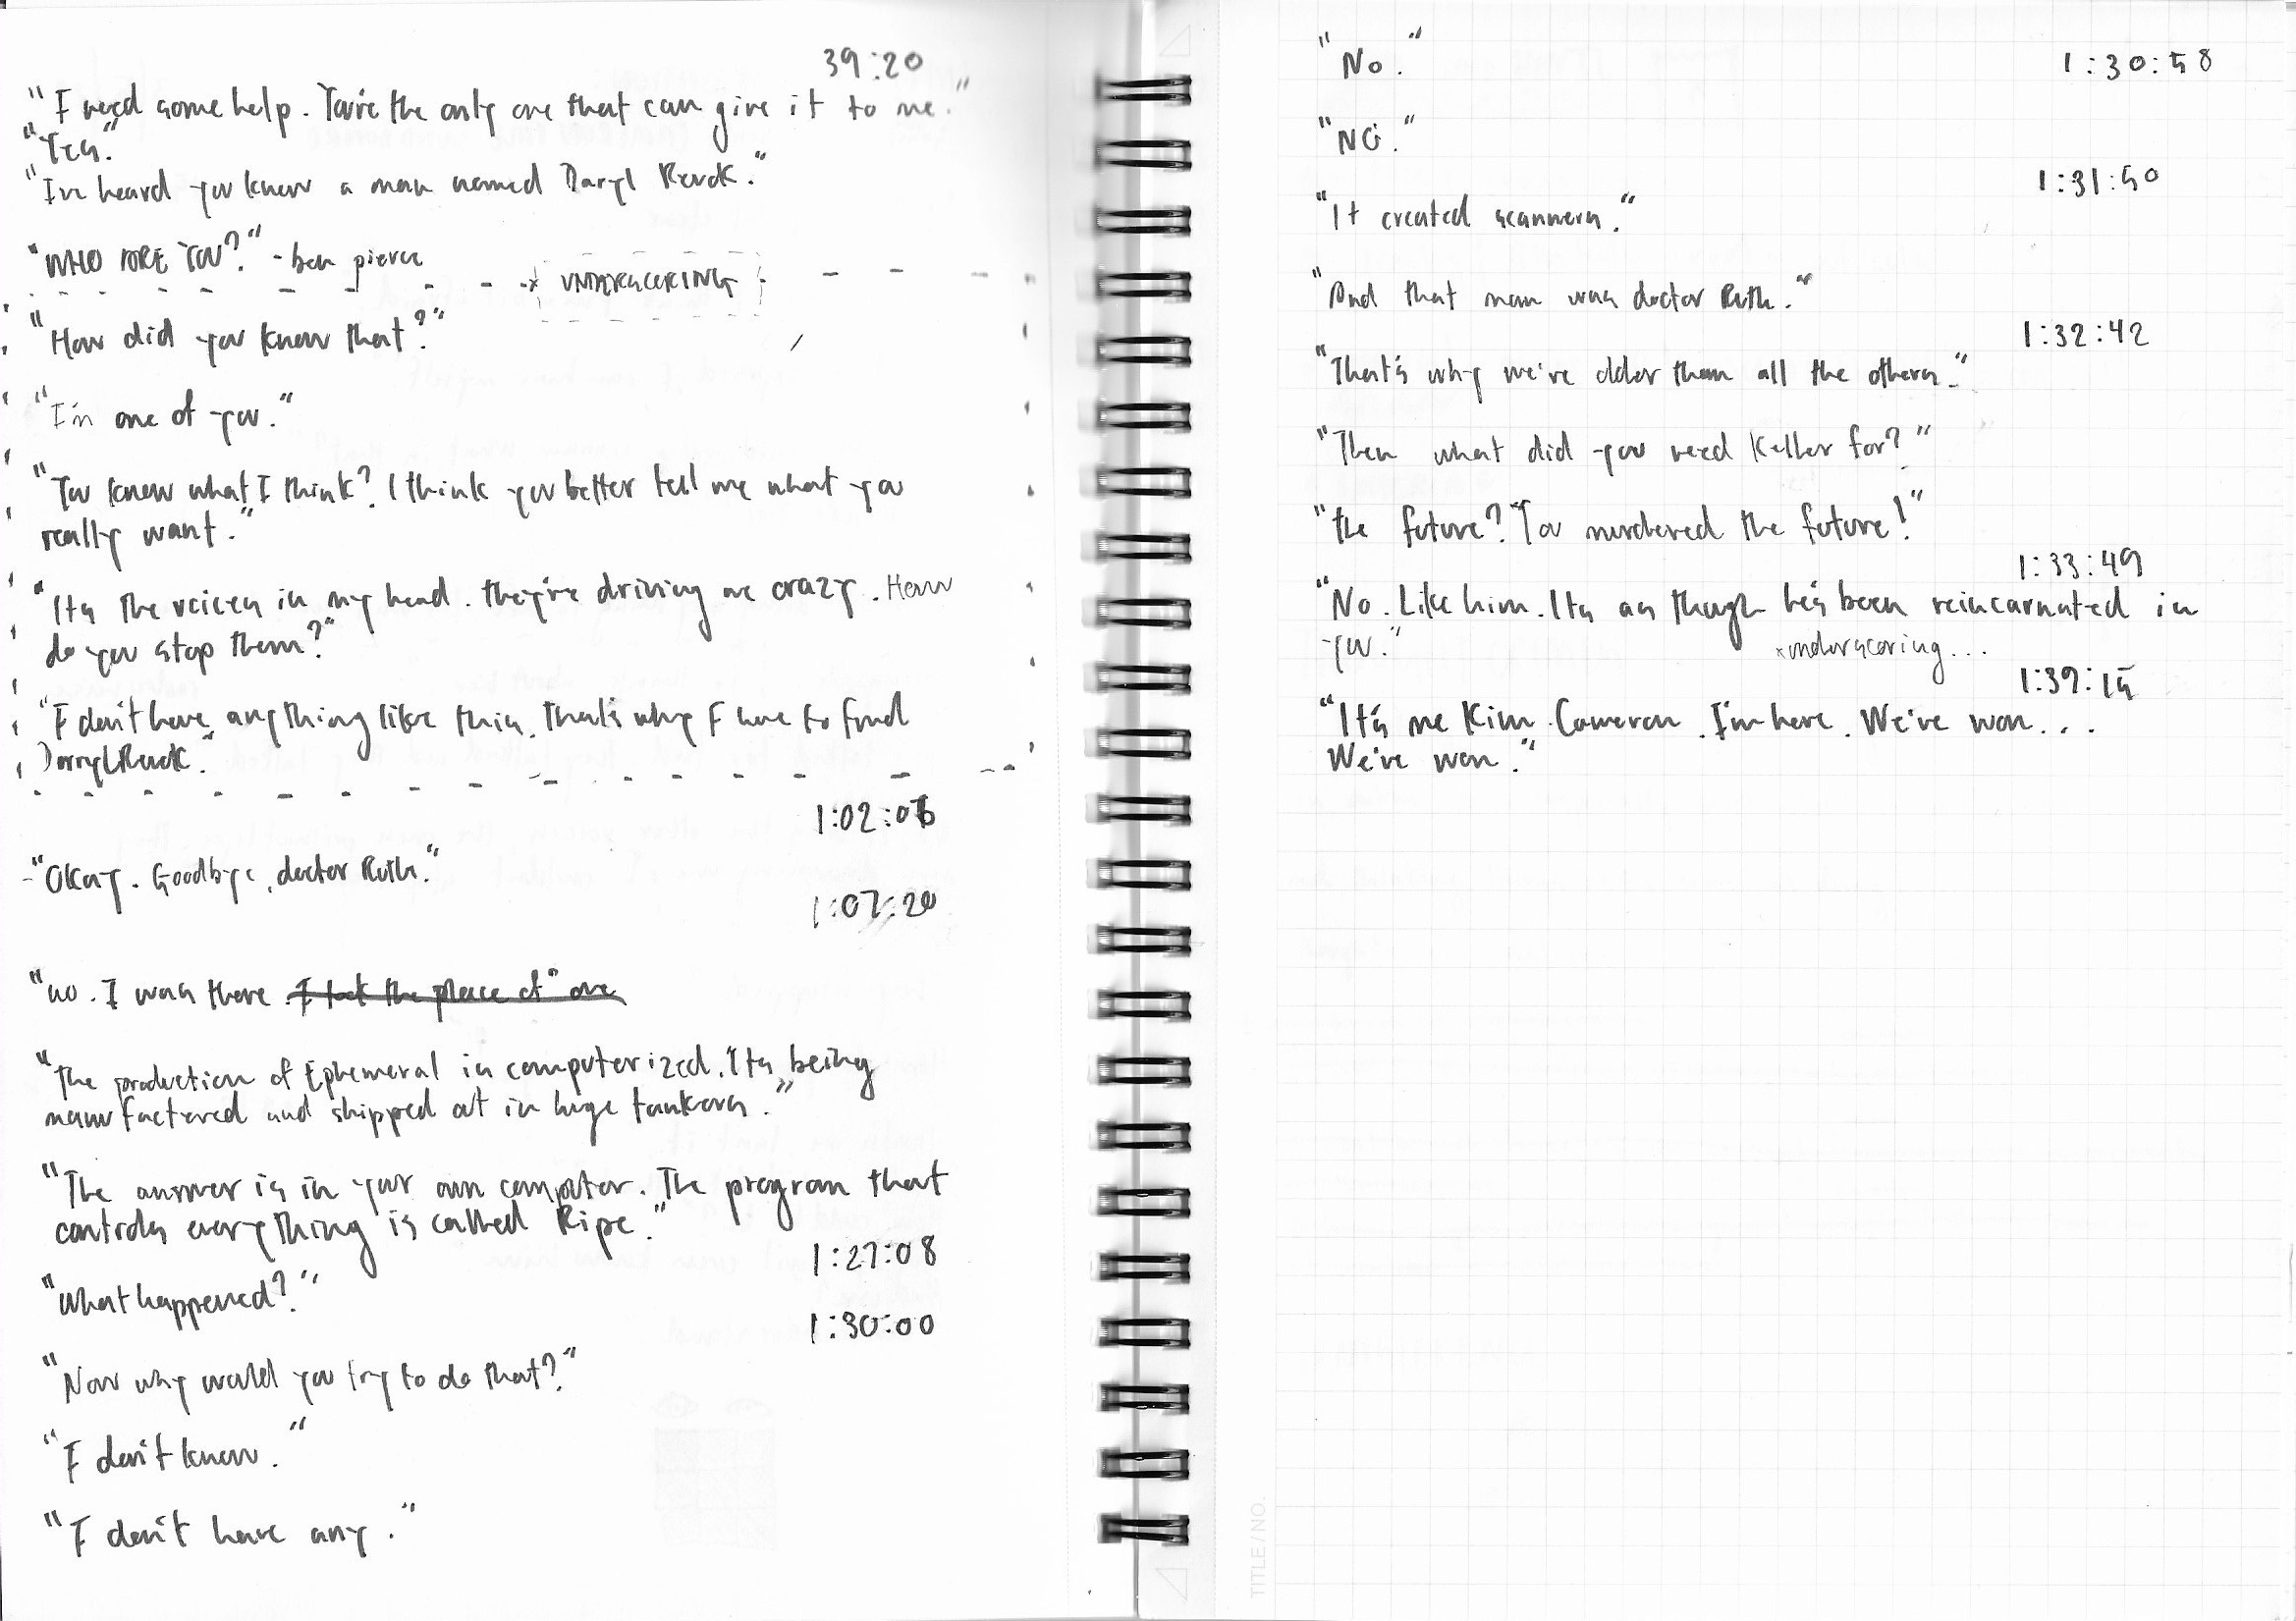 39:20
"I need some help. You're the only one that can give it to me."
"Yes."
"I've heard you knew a man named Daryl Revok."
"WHO ARE YOU?" - ben pierce
UNDERSCORING
"How did you know that?"
"I'm one of you."
"You know what I think? I think you better tell me what you
really want."
"Its the voices in my head. they're driving me crazy. How
do you stop them?"
"I don't have anything like this. that's why I have to find
Darryl Revok."
1:02:06
- "Okay. Goodbye, doctor Ruth."
1:07:20
"no. I was there. I took the place of" one
"The production of Ephemeral is computerized. Its being
manufactured and shipped out in huge tankers."
"The answer is in your own computer. The program that
controls everything is called Ripe."
1:27:08
"What happened?"
1:30:00
"Now why would you try to do that?"
"I don't know."
"I don't have any."
"No."
1:30:58
"NO."
1:31:50
"It created scanners."
"And that man was doctor Ruth."
1:32:42
"That's why we're older than all the others."
"Then what did you need Keller for?"
"the future? You murdered the future!"
1:33:49
"No. Like him. Its as though he's been reincarnated in
you."
x underscoring...
1:39:15
"It's me Kim. Cameron. I'm here. We've won...
We've won."
TITLE / NO.